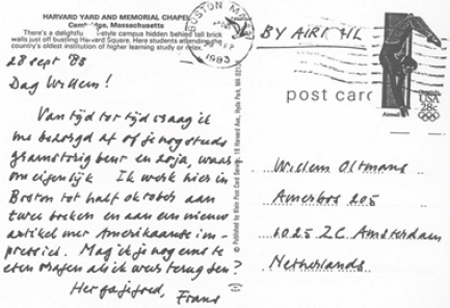 HARVARD YARD AND MEMORIAL CHAPEL
Cambridge, Massachusetts
There's a delightful style campus hidden behind tall brick
walls just off bustling Harvard Square. Here students attending the
country's oldest institution of higher learning study or relax.
28 sept '83
Dag Willem!
Van tijd tot tijd vraag ik
me bezorgd af of je nog steeds
beur en zo ja, waar
om eigenlijk. Ik werk hier in
Boston tot half oktober aan
twee boeken en aan een nieuw
artikel over Amerikaanse im-
Mag ik je nog eens te
eten vragen als ik weer terug ben?
Frans
© Published by Klein Post Card Service, 18 Harvard Ave., Hyde Park, MA
BOSTON MA
1983
BY AIR MAIL
post card
USA
28c
Airmail
Willem Oltmans
Amerbos 205
1025 ZC Amsterdam
Netherlands